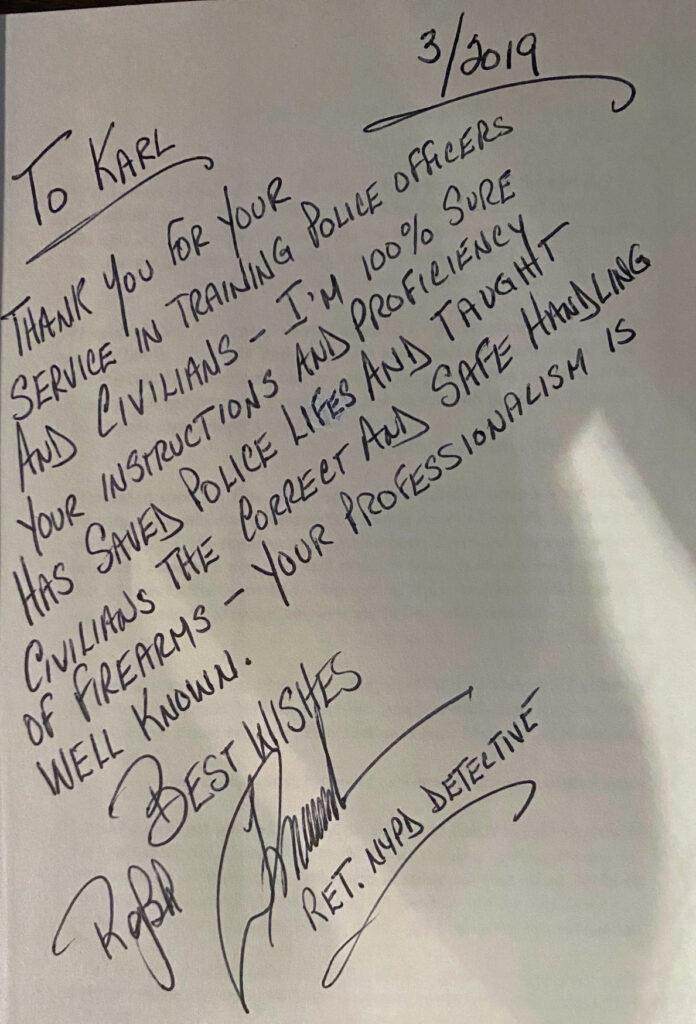 3/2019
To KARL
THANK YOU FOR YOUR
SERVICE IN TRAINING POLICE OFFICERS
AND CIVILIANS – I'M 100% SURE
YOUR INSTRUCTIONS AND PROFICIENCY
HAS SAVED POLICE LIFES AND TAUGHT
CIVILIANS THE CORRECT AND SAFE HANDLING
OF FIREARMS – YOUR PROFESSIONALISM IS
WELL KNOWN.
BEST WISHES
RET. NYPD DETECTIVE